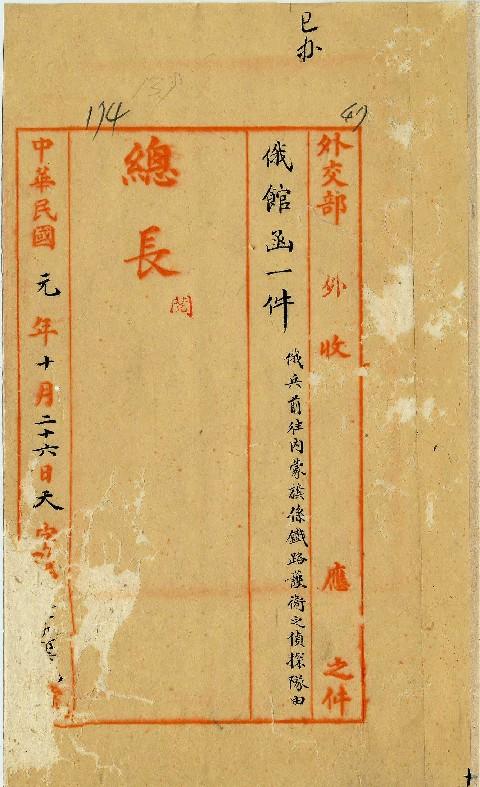 已办
47
174
外交部 外收 應 之件
俄館函一件
俄兵前往內蒙族係鐵路護衛之偵探隊由
總長
閱
中華民國元年十月二十六日天字